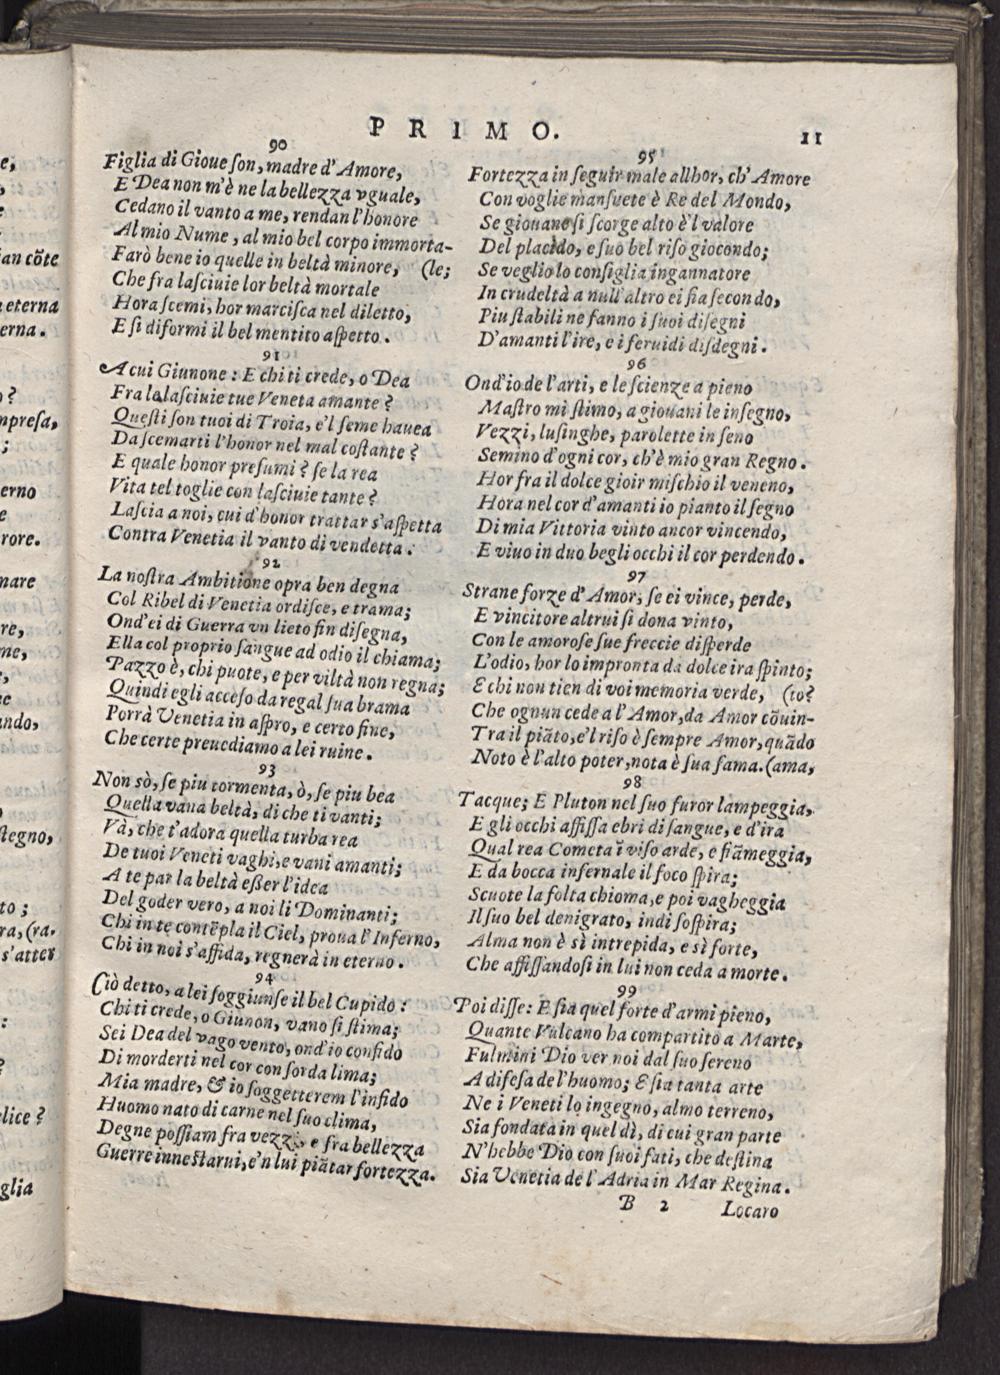 PRIMO.
11
90
Figlia di Gioue ſon, madre d'Amore,
E Dea non m'è ne la bellezza vguale,
Cedano il vanto a me, rendan l'honore
Al mio Nume, al mio bel corpo immorta-
Farò bene io quelle in beltà minore, (le;
Che fra laſciuie lor beltà mortale
Hora ſcemi, hor marciſca nel diletto,
E ſi diformi il bel mentito aſpetto.
91
A cui Giunone: E chi ti crede, o Dea
Fra le laſciuie tue Veneta amante?
Queſti ſon tuoi di Troia, e'l ſeme hauea
Da ſcemarti l'honor nel mal coſtante?
E quale honor preſumi? ſe la rea
Vita tel toglie con laſciuie tante?
Laſcia a noi, cui d'honor trattar s'aſpetta
Contra Venetia il vanto di vendetta.
92
La noſtra Ambitione opra ben degna
Col Ribel di Venetia ordiſce, e trama;
Ond'ei di Guerra vn lieto fin diſegna,
Ella col proprio ſangue ad odio il chiama;
Pazzo è, chi puote, e per viltà non regna;
Quindi egli acceſo da regal ſua brama
Porrà Venetia in aſpro, e certo fine,
Che certe preuediamo a lei ruine.
93
Non sò, ſe piu tormenta, ò, ſe piu bea
Quella vana beltà, di che ti vanti;
Và, che t'adora quella turba rea
De tuoi Veneti vaghi, e vani amanti;
A te par la beltà eſſer l'idea
Del goder vero, a noi li Dominanti;
Chi in te contẽpla il Ciel, proua l'Inferno,
Chi in noi s'affida, regnerà in eterno.
94
Ciò detto, a lei ſoggiunſe il bel Cupido:
Chi ti crede, o Giunon, vano ſi ſtima;
Sei Dea del vago vento, ond'io confido
Di morderti nel cor con ſorda lima;
Mia madre, & io ſoggetterem l'infido
Huomo nato di carne nel ſuo clima,
Degne poſſiam fra vezzi, e fra bellezza
Guerre inneſtarui, e'n lui piãtar fortezza.
95
Fortezza in ſeguir male allhor, ch'Amore
Con voglie manſuete è Re del Mondo,
Se giouane ſi ſcorge alto è'l valore
Del placido, e ſuo bel riſo giocondo;
Se veglio lo conſiglia ingannatore
In crudeltà a null'altro ei ſia ſecondo,
Piu ſtabili ne fanno i ſuoi diſegni
D'amanti l'ire, e i feruidi diſdegni.
96
Ond'io de l'arti, e le ſcienze a pieno
Maſtro mi ſtimo, a giouani le inſegno,
Vezzi, luſinghe, parolette in ſeno
Semino d'ogni cor, ch'è mio gran Regno.
Hor fra il dolce gioir miſchio il veneno,
Hora nel cor d'amanti io pianto il ſegno
Di mia Vittoria vinto ancor vincendo,
E viuo in duo begli occhi il cor perdendo.
97
Strane forze d'Amor, ſe ei vince, perde,
E vincitore altrui ſi dona vinto,
Con le amoroſe ſue freccie diſperde
L'odio, hor lo impronta da dolce ira ſpinto;
E chi non tien di voi memoria verde, (to?
Che ognun cede a l'Amor, da Amor cõuin-
Tra il piãto, e'l riſo è ſempre Amor, quãdo
Noto è l'alto poter, nota è ſua fama. (ama,
98
Tacque; E Pluton nel ſuo furor lampeggia,
E gli occhi affiſſa ebri di ſangue, e d'ira
Qual rea Cometa ĩ viſo arde, e fiãmeggia,
E da bocca infernale il foco ſpira;
Scuote la folta chioma, e poi vagheggia
Il ſuo bel denigrato, indi ſoſpira;
Alma non è sì intrepida, e sì forte,
Che affiſſandoſi in lui non ceda a morte.
99
Poi diſſe: E ſia quel forte d'armi pieno,
Quante Vulcano ha compartito a Marte,
Fulmini Dio ver noi dal ſuo ſereno
A difeſa de l'huomo; E ſia tanta arte
Ne i Veneti lo ingegno, almo terreno,
Sia fondata in quel dì, di cui gran parte
N'hebbe Dio con ſuoi fati, che deſtina
Sia Venetia de l'Adria in Mar Regina.
B 2
Locaro